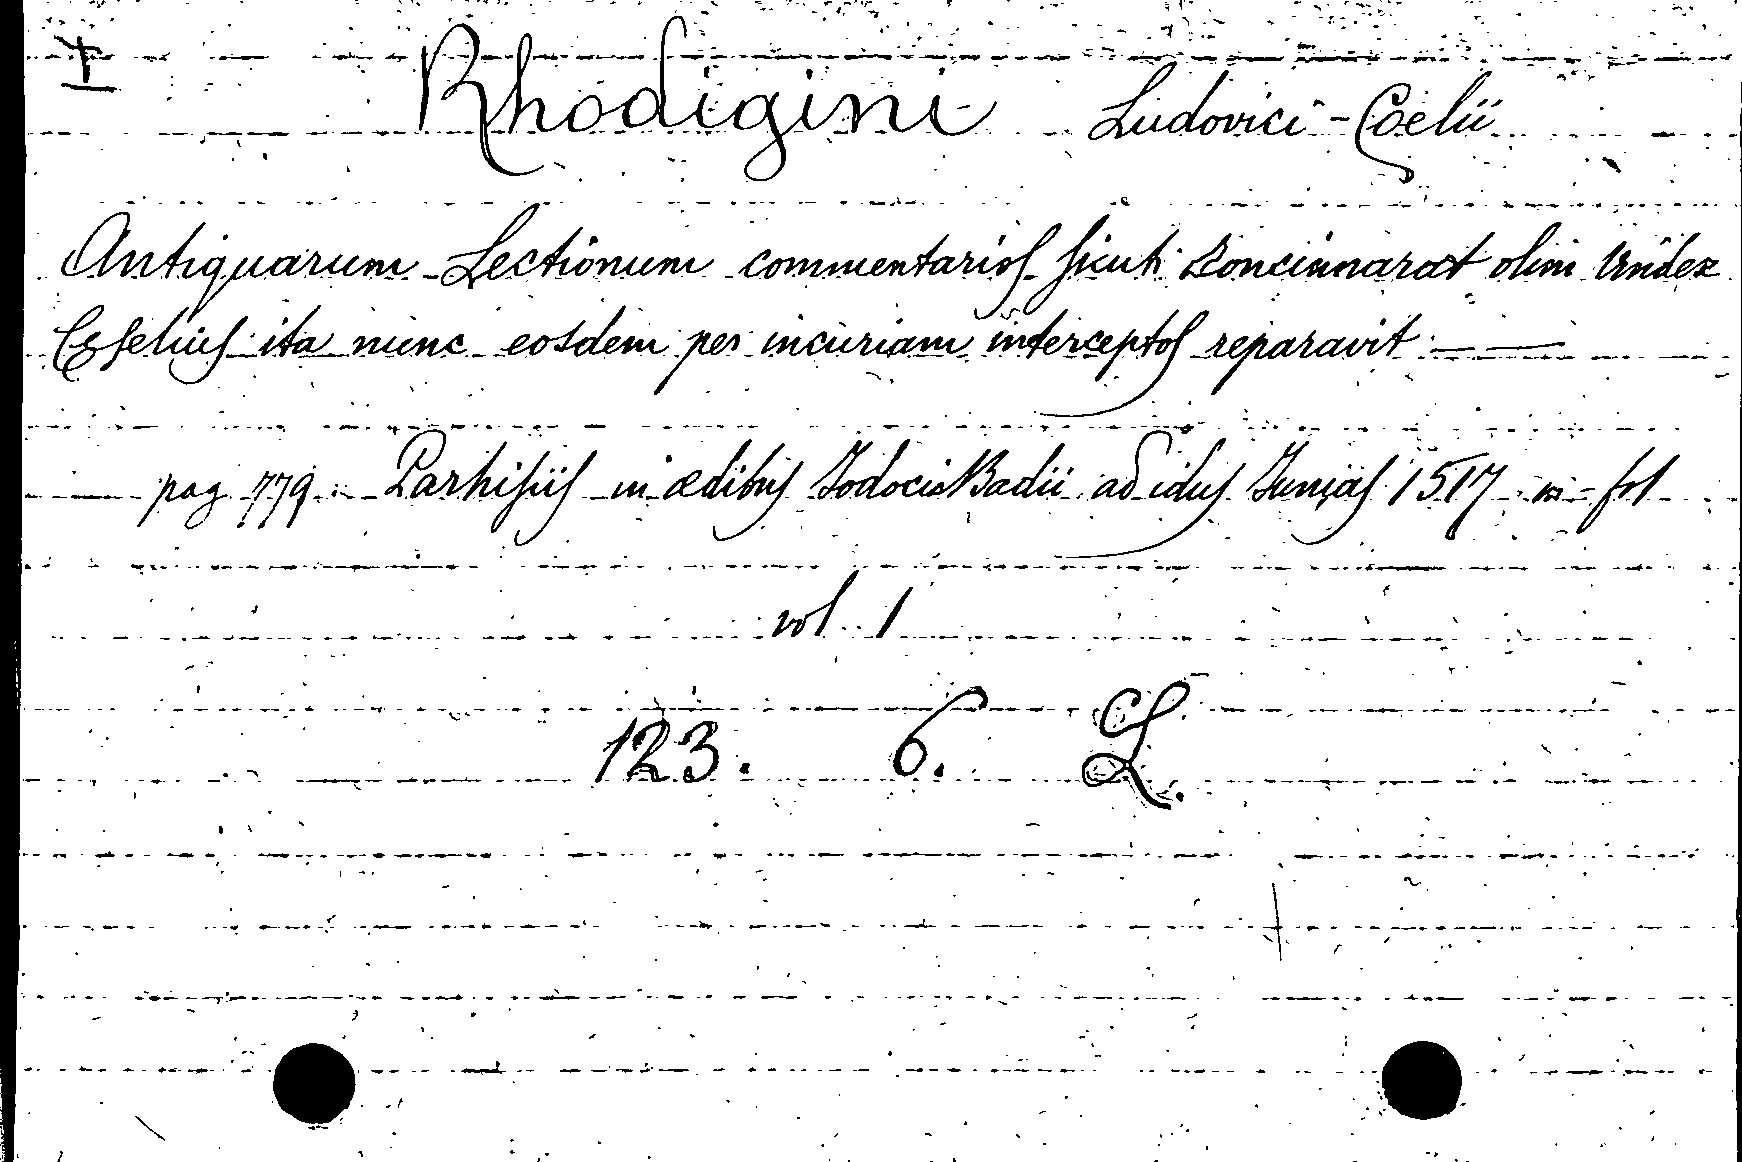 I Rhodigini Ludovici-Coelii
Antiquarum Lectionum commentarios sicuti concinnarat olim Vindex
Ceselius ita nunc eosdem per incuriam interceptos reparavit
pag 779. Parhisiis in ædibus Jodoci Badii ad idus Junias 1517 in-fol
vol 1
123. 6. L.